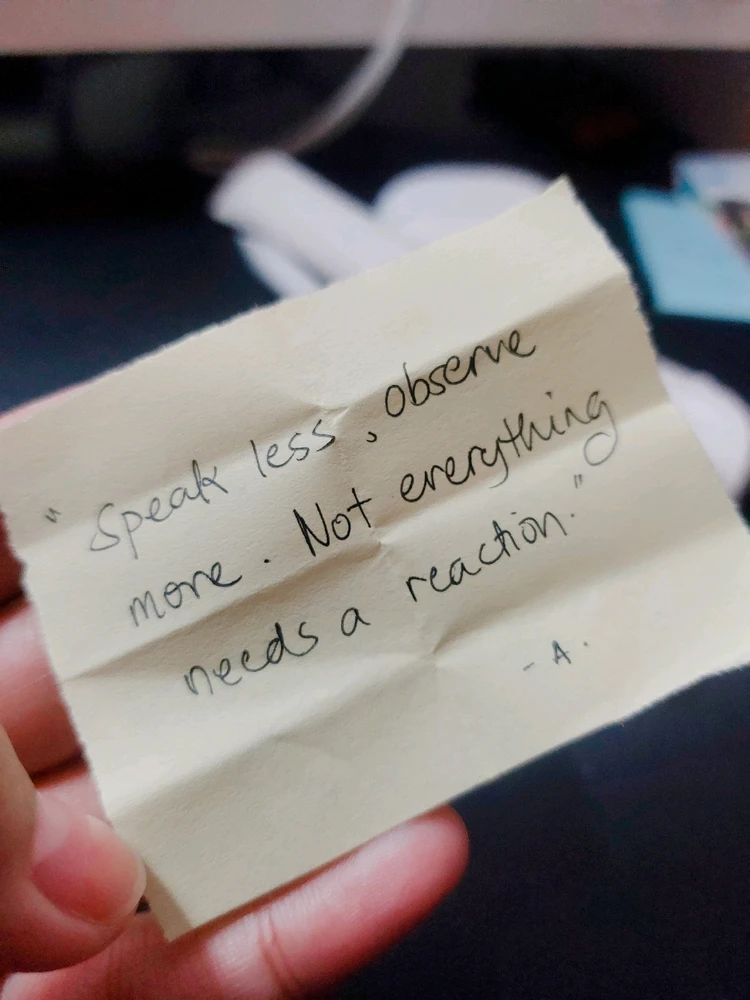 " Speak less, observe
more. Not everything
needs a reaction."
- A.